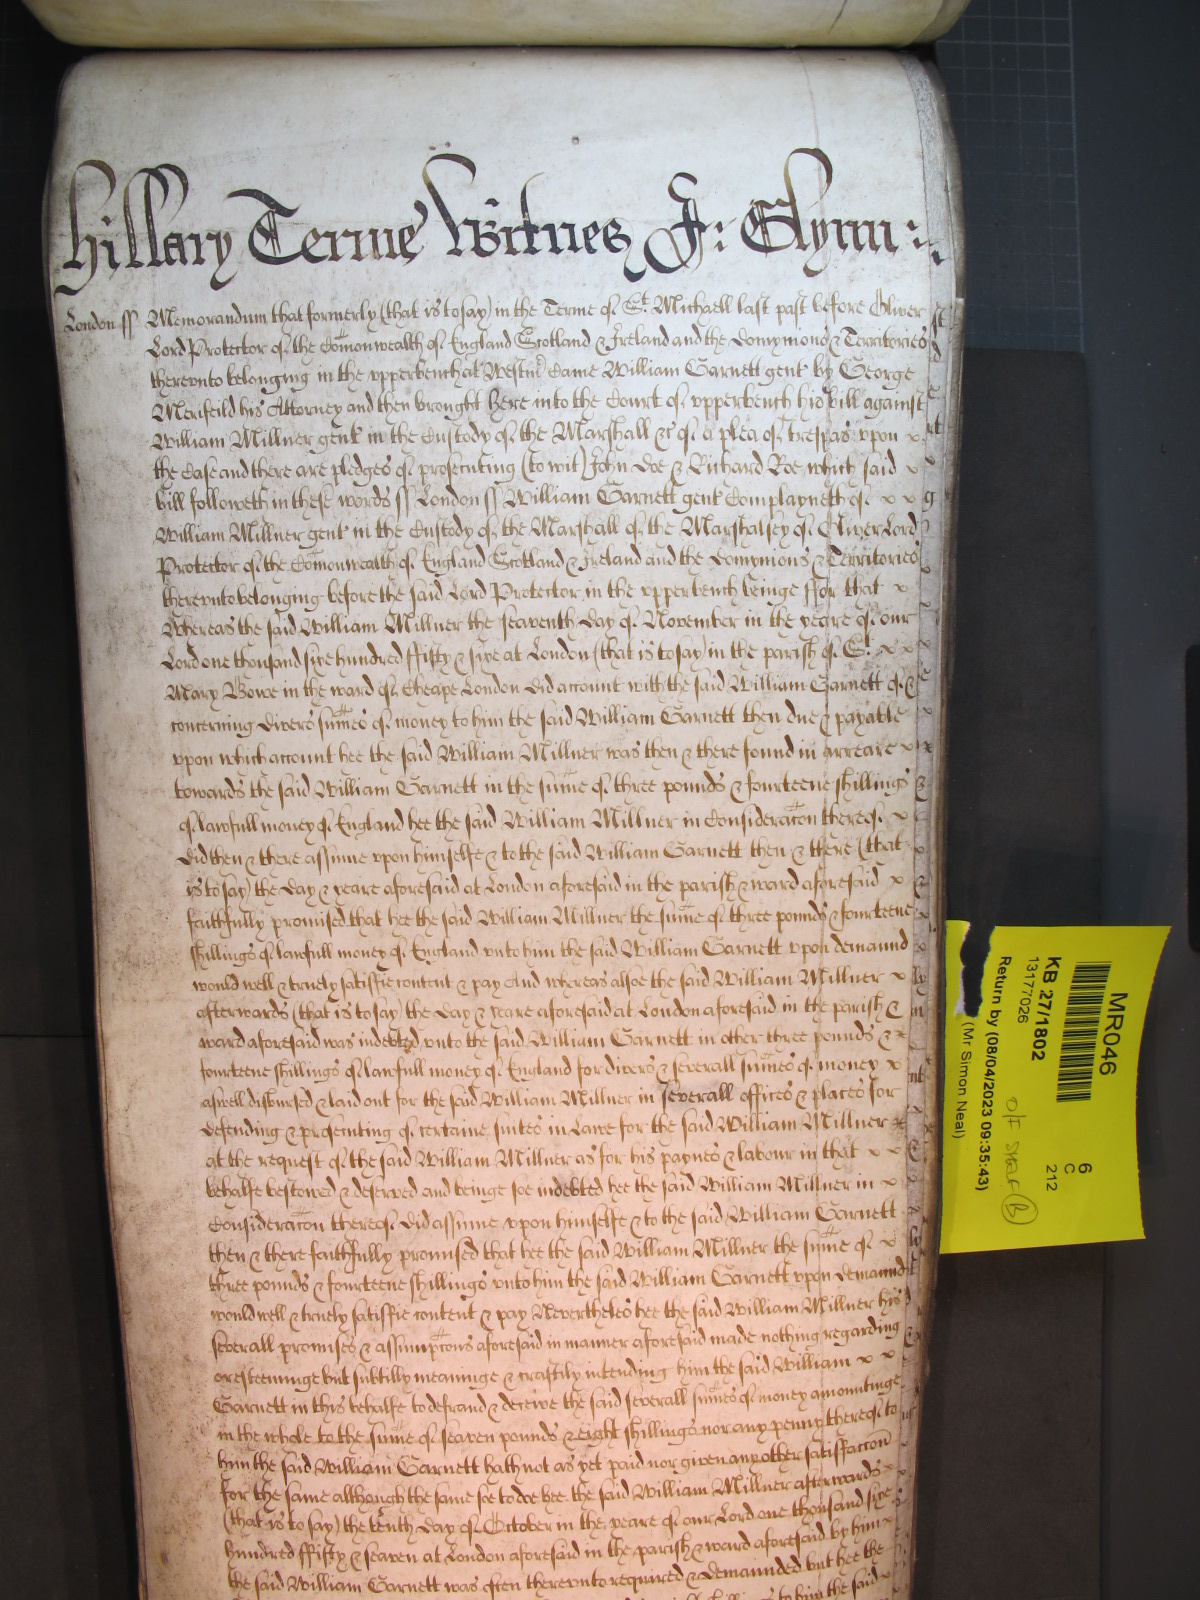 Hillary Terme Witnes J: Glynn :
London ss Memorandum that formerly (that is to say) in the Terme of St Michaell last past before Oliver
Lord Protector of the Comonwealth of England Scotland & Ireland and the Domynions & Territories
therevnto belonging in the vpperbench at Westmr Came William Garnett gent by George
Merifeild his Attorney and then brought here into the Court of vpperbench his bill against
William Millner gent in the Custody of the Marshall &c of a plea of trespas vpon x
the Case and there are pledges of prosecuting (to wit) John Doe & Richard Roe which said x
bill followeth in these words ss London ss William Garnett gent Complayneth of x x
William Millner gent in the Custody of the Marshall of the Marshalsey of Oliver Lord
Protector of the Comonwealth of England Scotland & Ireland and the Domynions & Territories
therevnto belonging before the said Lord Protector in the vpperbench beinge ffor that x
Whereas the said William Millner the seaventh day of November in the yeare of our
Lord one thousand sixe hundred ffifty & sixe at London (that is to say) in the parish of St x x x
Mary Bowe in the ward of Cheape London did account with the said William Garnett of &
concerning divers sumes of money to him the said William Garnett then due & payable
vpon which account hee the said William Millner was then & there found in arreare x
towards the said William Garnett in the sume of three pounds & fourteene shillings
of lawfull money of England hee the said William Millner in Consideracon thereof x
did then & there assume vpon himselfe & to the said William Garnett then & there (that
is to say) the day & yeare aforesaid at London aforesaid in the parish & ward aforesaid x
faithfully promised that hee the said William Millner the sume of three pounds & fourteene
shillings of lawfull money of England vnto him the said William Garnett vpon demaund
would well & truely satisfie content & pay And whereas alsoe the said William Millner x
afterwards (that is to say) the day & yeare aforesaid at London aforesaid in the parish &
ward aforesaid was indebted vnto the said William Garnett in other three pounds &
fourteene shillings of lawfull money of England for divers & severall sumes of money x
aswell disbursed & laid out for the said William Millner in severall offices & places for
defending & prosecuting of certaine suites in Lawe for the said William Millner
at the request of the said William Millner as for his paynes & labour in that x x
behalfe bestowed & deserved and beinge soe indebted hee the said William Millner in x
Consideracon thereof did assume vpon himselfe & to the said William Garnett
then & there faithfully promised that hee the said William Millner the sume of x
three pounds & fourteene shillings vnto him the said William Garnett vpon demaund
would well & truely satisfie content & pay Neverthelès hee the said William Millner his
severall promises & assumpcons aforesaid in manner aforesaid made nothing regarding
or esteeminge but subtilly meaninge & craftily intending him the said William x x
Garnett in this behalfe to defraud & deceive the said severall sumes of money amountinge
in the whole to the sume of seaven pounds & eight shillings nor any penny thereof to
him the said William Garnett hath not as yet paid nor given any other satisfaccon
for the same although the same soe to doe hee the said William Millner afterwards x
(that is to say) the tenth day of October in the yeare of our Lord one thousand sixe
hundred ffifty & seaven at London aforesaid in the parish & ward aforesaid by him x
the said William Garnett was often therevnto required & demaunded but hee the
to him the said
MR046
KB 27/1802
13177026
Return by (08/04/2023 09:35:43)
(Mr Simon Neal)
6
C
212
O/F
B